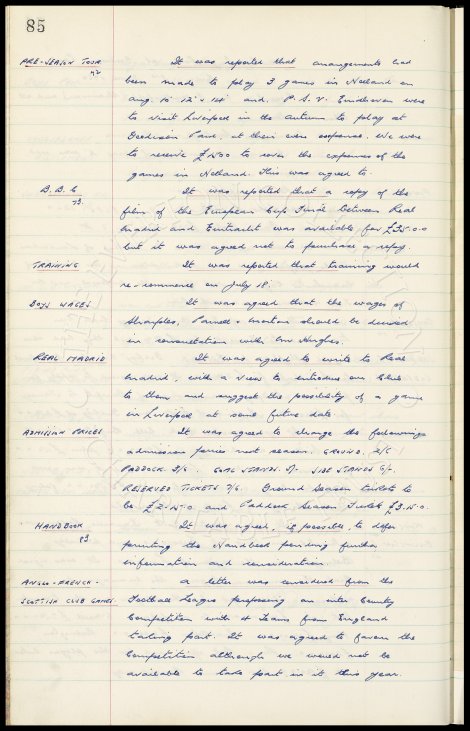 85
PRE-SEASON TOUR It was reported that arrangements had
92 been made to play 3 games in Holland on
Aug. 10 12 & 14 and P.S.V. Eindhoven were
to visit Liverpool in the autumn to play at
Goodison Park, at their own expense. We were
to receive £1500 to cover the expenses of the
games in Holland. This was agreed to.
B.B.C It was reported that a copy of the
93. film of the European Cup Final between Real
Madrid and Eintracht was available for £35-0-0
but it was agreed not to purchase a copy.
TRAINING It was reported that training would
re-commence on July 18.
BOYS WAGES It was agreed that the wages of
Sharples, Parnell & should be decided
in consultation with Mr Hughes.
REAL MADRID It was agreed to write to Real
Madrid, with a view to introduce our Club
to them and suggest the possibility of a game
in Liverpool at some future date.
ADMISSION PRICES It was agreed to charge the following
admission prices next season. GROUND. 2/6
PADDOCK. 3/6. GOAL STANDS. 5/- SIDE STANDS 6/-.
RESERVED TICKETS 7/6. Ground Season tickets to
be £2-15-0 and Paddock Season Tickets £3-15-0.
HANDBOOK It was agreed, if possible, to defer
83 printing the Handbook pending further
information and consideration.
ANGLO-FRENCH- A letter was considered from the
SCOTTISH CLUB GAMES. Football League proposing an inter Country
Competition with 4 Teams from England
taking part. It was agreed to favour the
Competition although we would not be
available to take part in it this year.